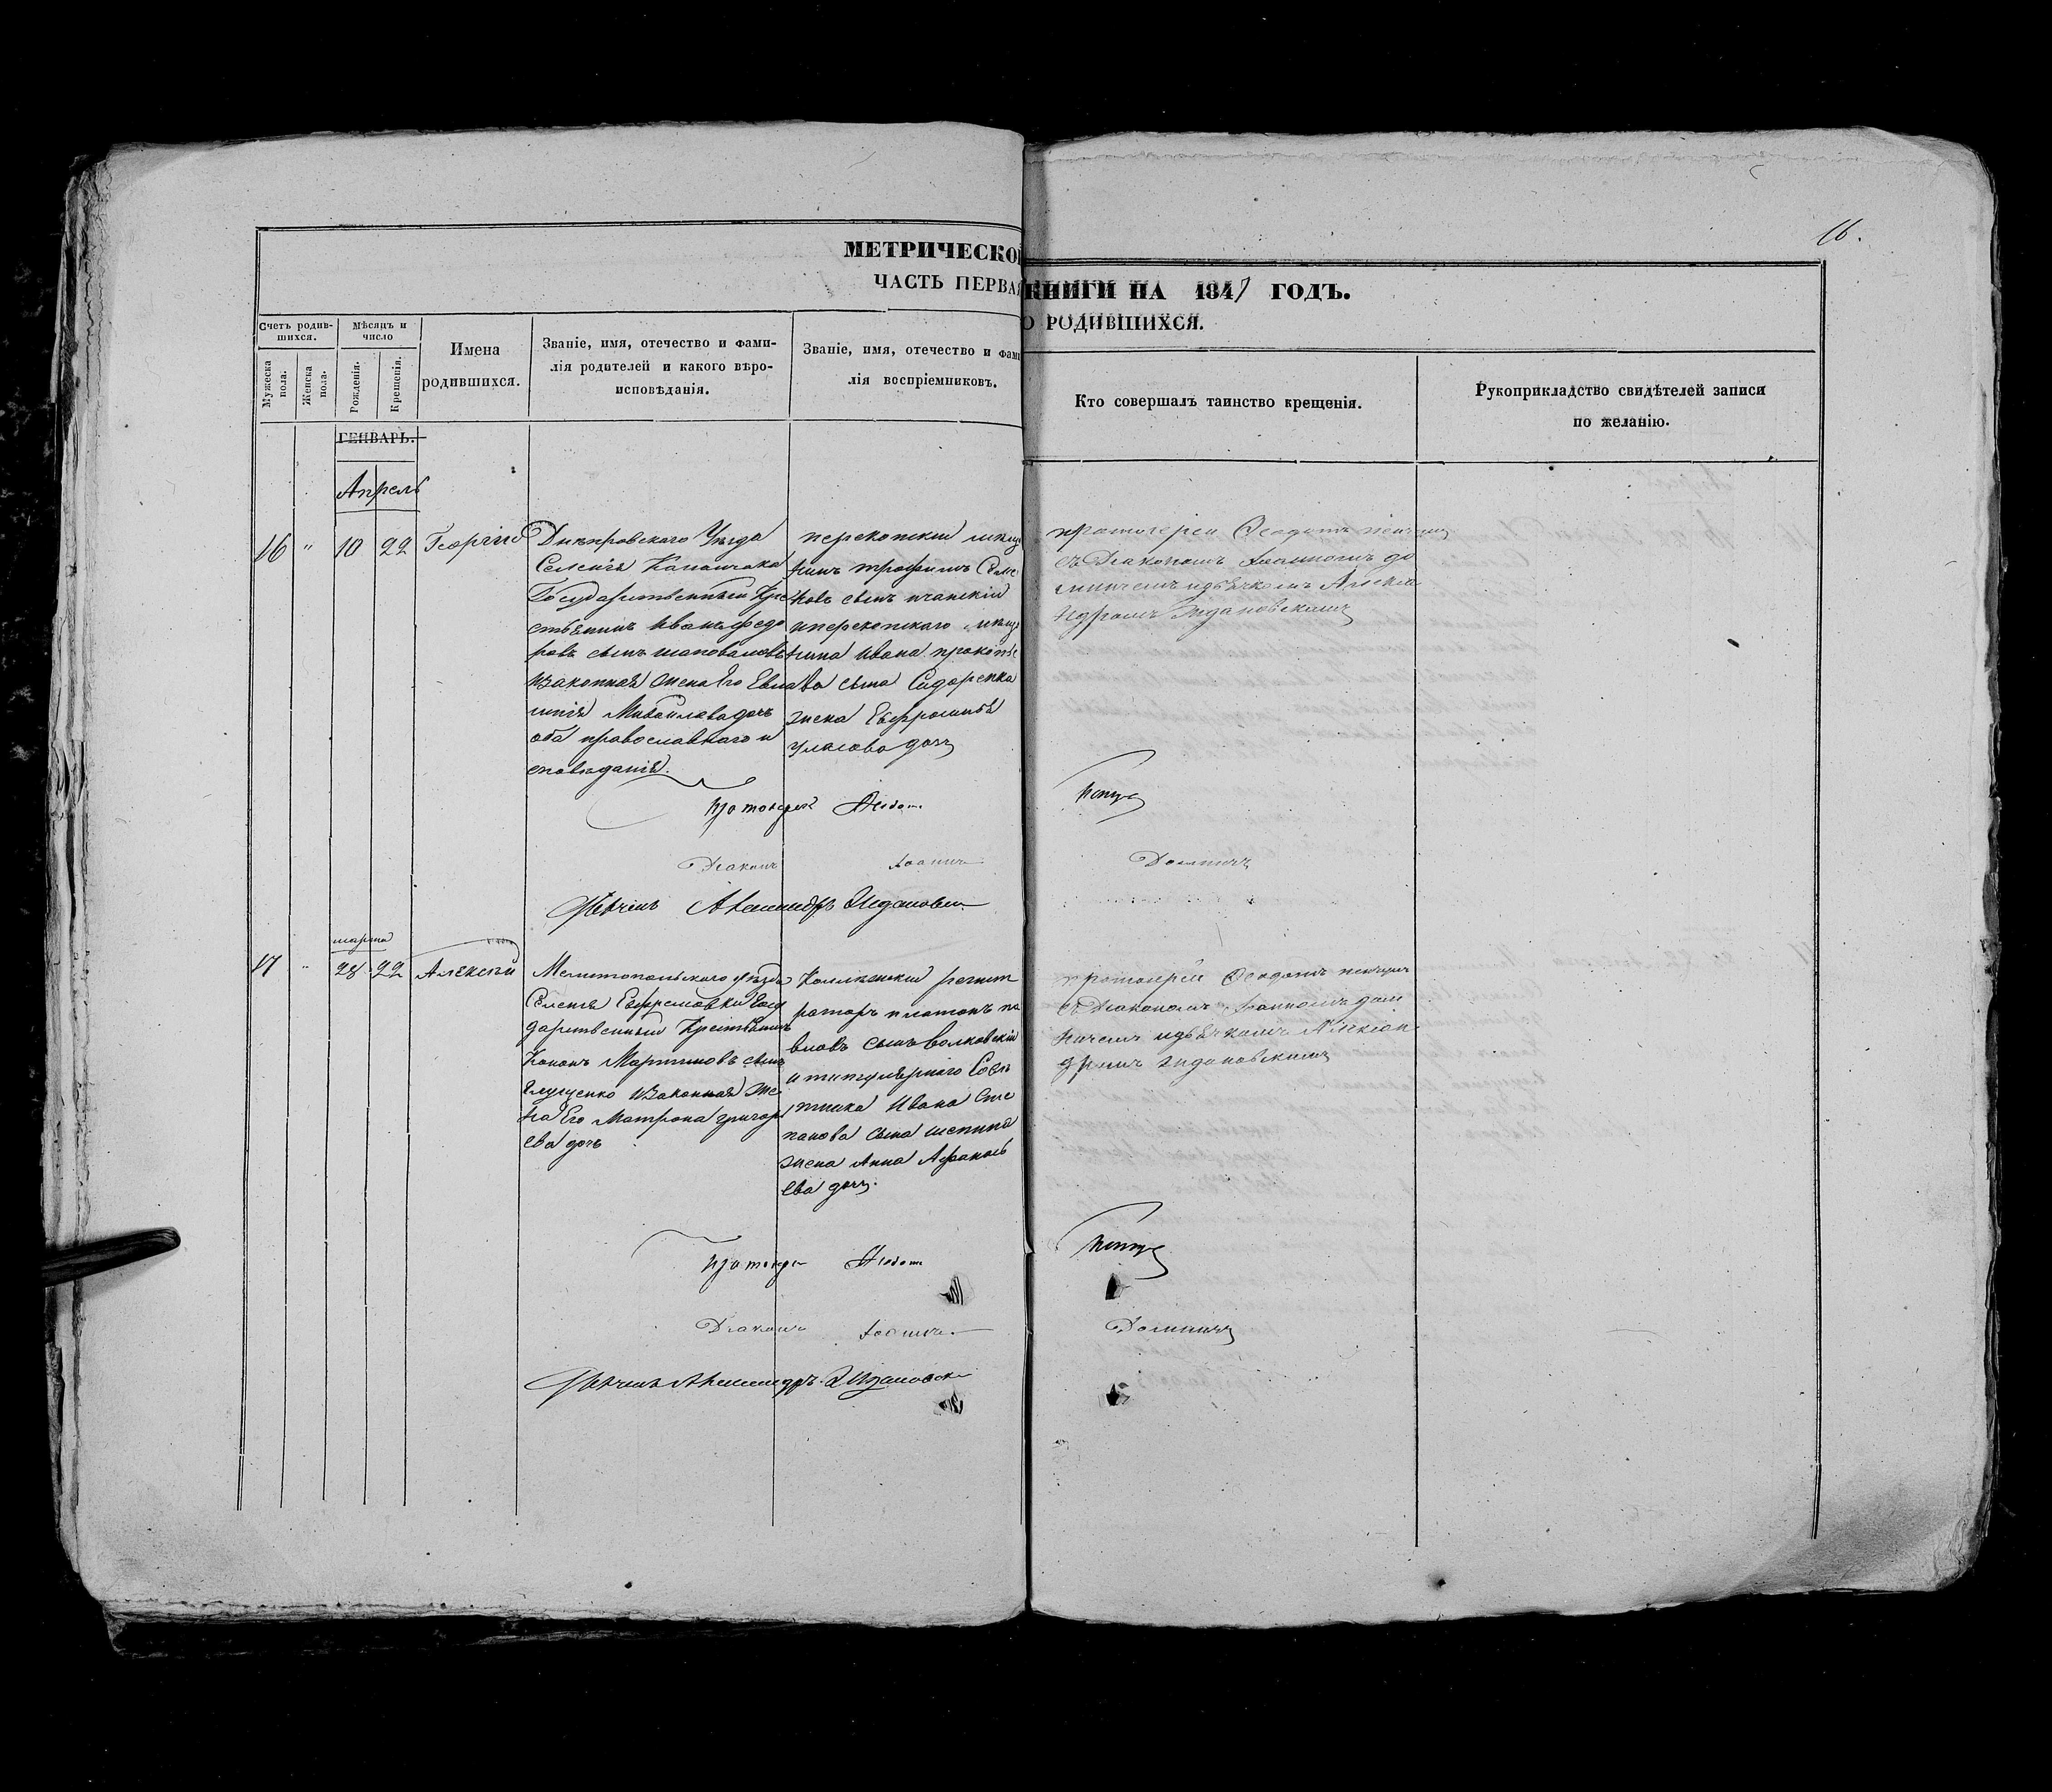 16.
МЕТРИЧЕСКОЙ КНИГИ НА 1847 ГОДЪ.
ЧАСТЬ ПЕРВАЯ О РОДИВШИХСЯ.
Счетъ родив-
шихся.
Мужеска
пола.
Женска
пола.
Мѣсяцъ и
число
Рожденія.
Крещенія.
Имена
родившихся.
Званіе, имя, отечество и фами-
лія родителей и какого вѣро-
исповѣданія.
Званіе, имя, отечество и фами
лія воспріемниковъ.
Кто совершалъ таинство крещенія.
Рукоприкладство свидѣтелей записи
по желанію.
ГЕНВАРЬ.
Апрель
16 " 10 22 Георгій
Днѣпровскаго Уѣзда
Селенія Каланчака
Государственный Кре
стьянинъ Иванъ федо
ровъ сынъ шаповаловъ
изаконная жена Его Евла
мпія Михаилова дочь
оба православнаго и
сповѣданія.
перекопскій мѣща
нинъ трофимъ Семе
новъ сынъ
иперекопскаго мѣща
нина Ивана прокопье
ва сына Сидоренка
жена Ефросинья
уласова дочь
протоіерей Феодотъ
съ Діакономъ Іоанномъ до
миничемъ идьячкомъ Алекса
ндромъ Ждановскимъ
протоіерей Феодотъ
Діаконъ Іоаннъ
Дьячекъ Александръ Ждановск
марта
17 " 28 22 Алексѣй
Мелитопольскаго уѣзда
Селенія Ефремовки Госу
дарственный Крестьянинъ
Кононъ Мартиновъ сынъ
изаконная же
на Его Матрона григорь
ева дочь
Коллежскій регист
раторъ платонъ па
вловъ сынъ волковскій
ититулярнаго Совѣ
тника Ивана Сте
панова сына
жена Анна Афанась
ева дочь.
протоіерей Феодотъ
съ Діакономъ Іоанномъ доми
ничемъ идьячкомъ Алексан
дромъ ждановскимъ
протоіерей Феодотъ
Діаконъ Іоаннъ
Дьячекъ Александръ Ждановск